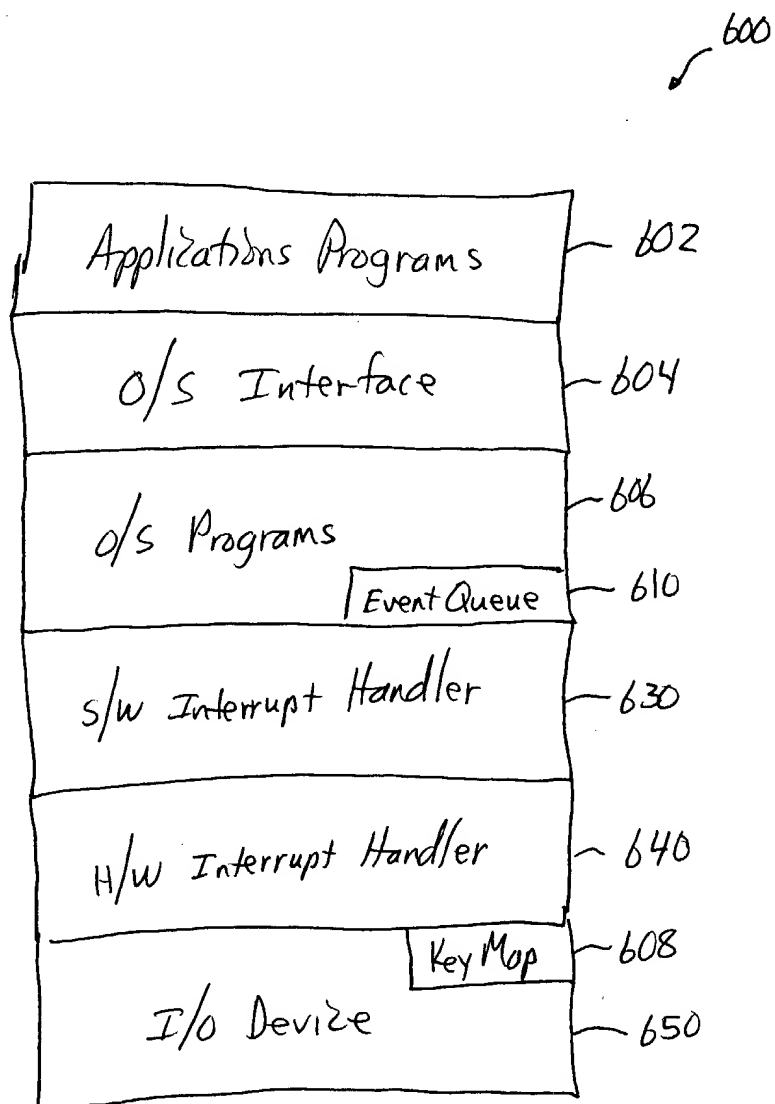 600
Applications Programs 602
O/S Interface 604
606
O/S Programs
Event Queue 610
S/W Interrupt Handler 630
H/W Interrupt Handler 640
Key Map 608
I/O Device 650